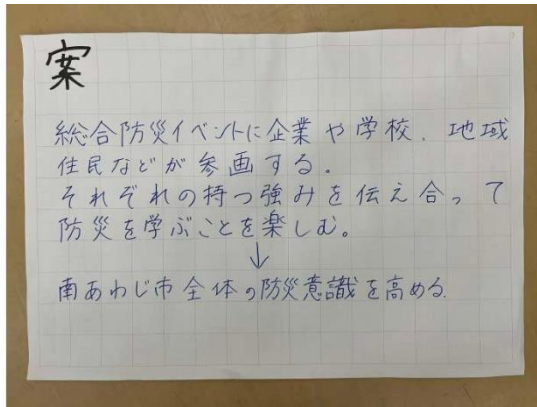 案
総合防災イベントに企業や学校、地域
住民などが参画する。
それぞれの持つ強みを伝え合って
防災を学ぶことを楽しむ。
↓
南あわじ市全体の防災意識を高める